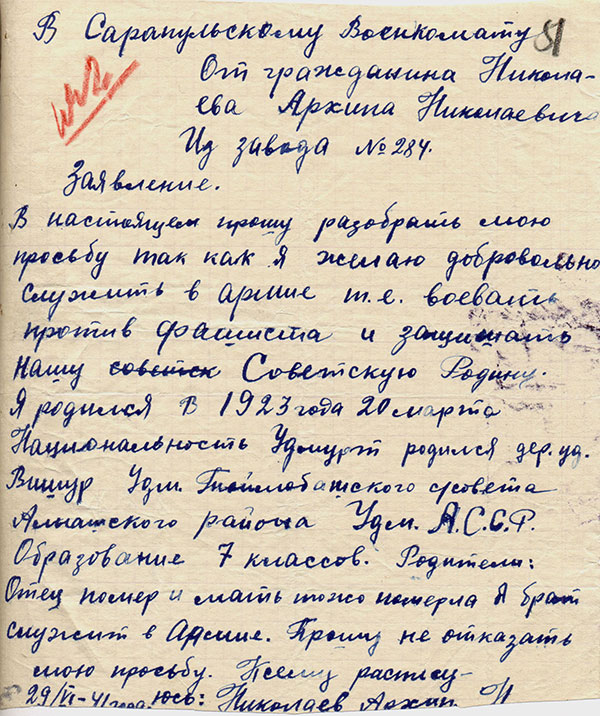 В Сарапульскому Военкомату 81
От гражданина Никола-
ева Архипа Николаевича
Из завода №284.
Заявление.
В настоящем прошу разобрать мою
просьбу так как я желаю добровольно
служить в армие т.е. воевать
против фашиста и защищать
нашу советск Советскую Родину.
Я родился в 1923 года 20 марта
Национальность Удмурт родился дер. уд.
Вишур Удм. с/совета
Алнашского района Удм. А.С.С.Р.
Образование 7 классов. Родители:
Отец помер и мать тожо померла Я брат
служит в Армие. Прошу не отказать
мою просьбу. К сему распису-
29/VI-41 года юсь: Николаев Архип Н